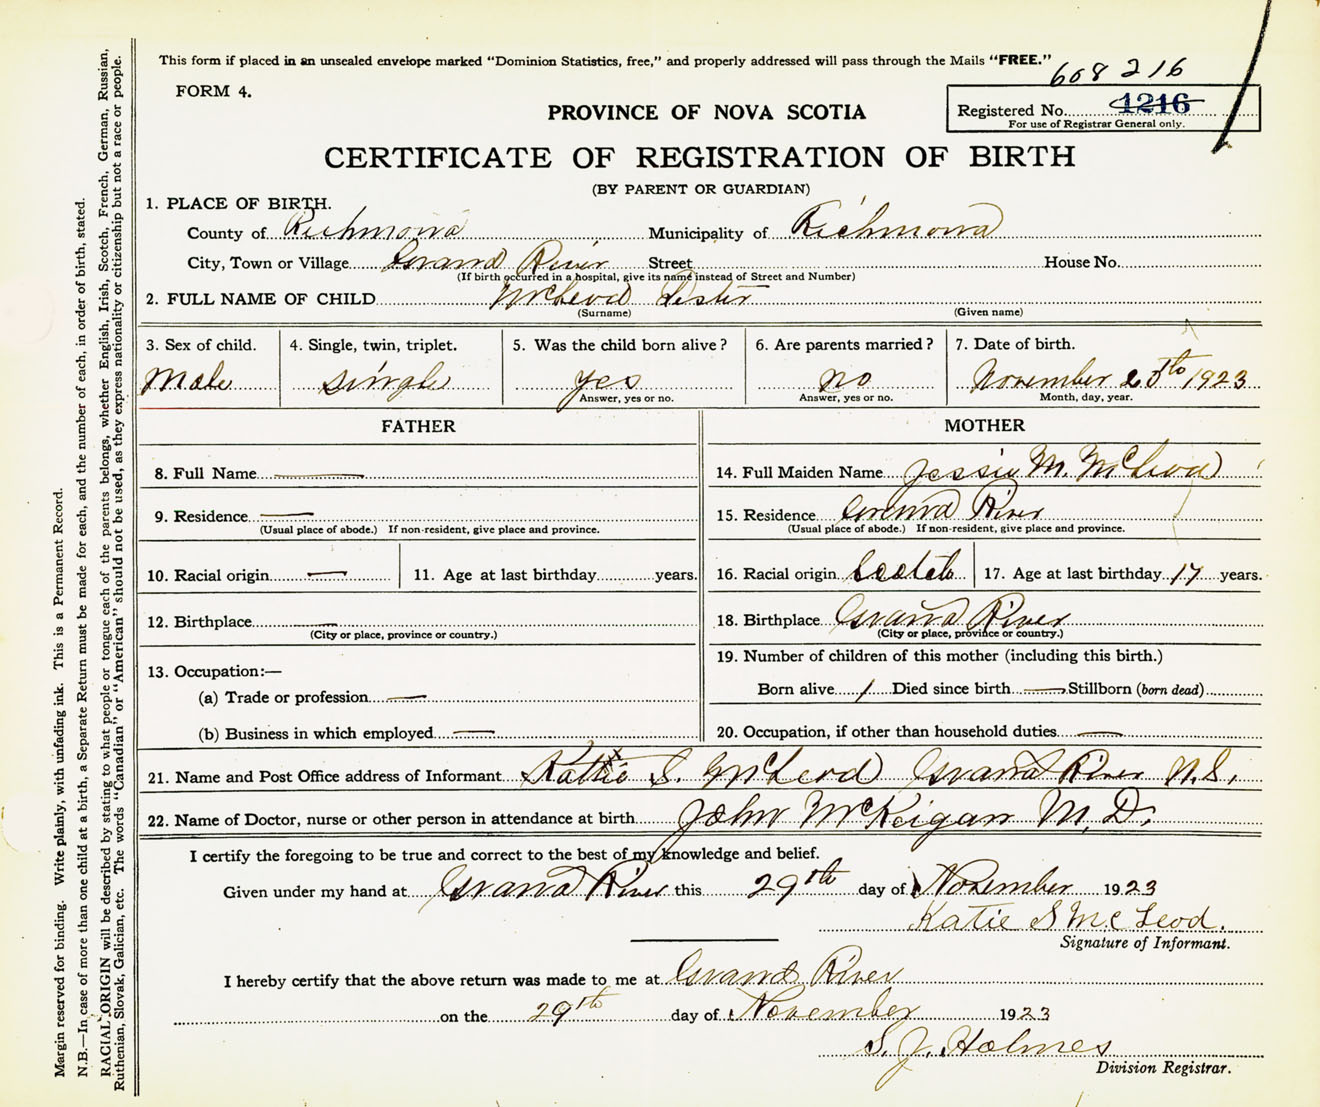 This form if placed in an unsealed envelope marked "Dominion Statistics, free," and properly addressed will pass through the Mails "FREE."
608216
FORM 4.
PROVINCE OF NOVA SCOTIA
Registered No. 1216
For use of Registrar General only.
CERTIFICATE OF REGISTRATION OF BIRTH
(BY PARENT OR GUARDIAN)
1. PLACE OF BIRTH.
County of Richmond Municipality of Richmond
City, Town or Village Grand River Street House No.
(If birth occurred in a hospital, give its name instead of Street and Number)
2. FULL NAME OF CHILD McLeod Lester
(Surname) (Given name)
3. Sex of child. 4. Single, twin, triplet. 5. Was the child born alive? 6. Are parents married? 7. Date of birth.
Male single yes no November 25th 1923
Answer, yes or no. Answer, yes or no. Month, day, year.
FATHER MOTHER
8. Full Name — 14. Full Maiden Name Jessie M. McLeod
9. Residence — 15. Residence Grand River
(Usual place of abode.) If non-resident, give place and province. (Usual place of abode.) If non-resident, give place and province.
10. Racial origin — 11. Age at last birthday years. 16. Racial origin Scotch 17. Age at last birthday 17 years.
12. Birthplace — 18. Birthplace Grand River
(City or place, province or country.) (City or place, province or country.)
13. Occupation:— 19. Number of children of this mother (including this birth.)
(a) Trade or profession — Born alive 1 Died since birth — Stillborn (born dead)
(b) Business in which employed — 20. Occupation, if other than household duties —
21. Name and Post Office address of Informant Kattie S. McLeod Grand River N.S.
22. Name of Doctor, nurse or other person in attendance at birth John McKeigan M.D.
I certify the foregoing to be true and correct to the best of my knowledge and belief.
Given under my hand at Grand River this 29th day of November 1923
Katie S McLeod.
Signature of Informant.
I hereby certify that the above return was made to me at Grand River
on the 29th day of November 1923
S. J. Holmes
Division Registrar.
Margin reserved for binding. Write plainly, with unfading ink. This is a Permanent Record.
N.B.—In case of more than one child at a birth, a Separate Return must be made for each, and the number of each, in order of birth, stated.
RACIAL ORIGIN will be described by stating to what people or tongue each of the parents belongs, whether English, Irish, Scotch, French, German, Russian,
Ruthenian, Slovak, Galician, etc. The words "Canadian" or "American" should not be used, as they express nationality or citizenship but not a race or people.